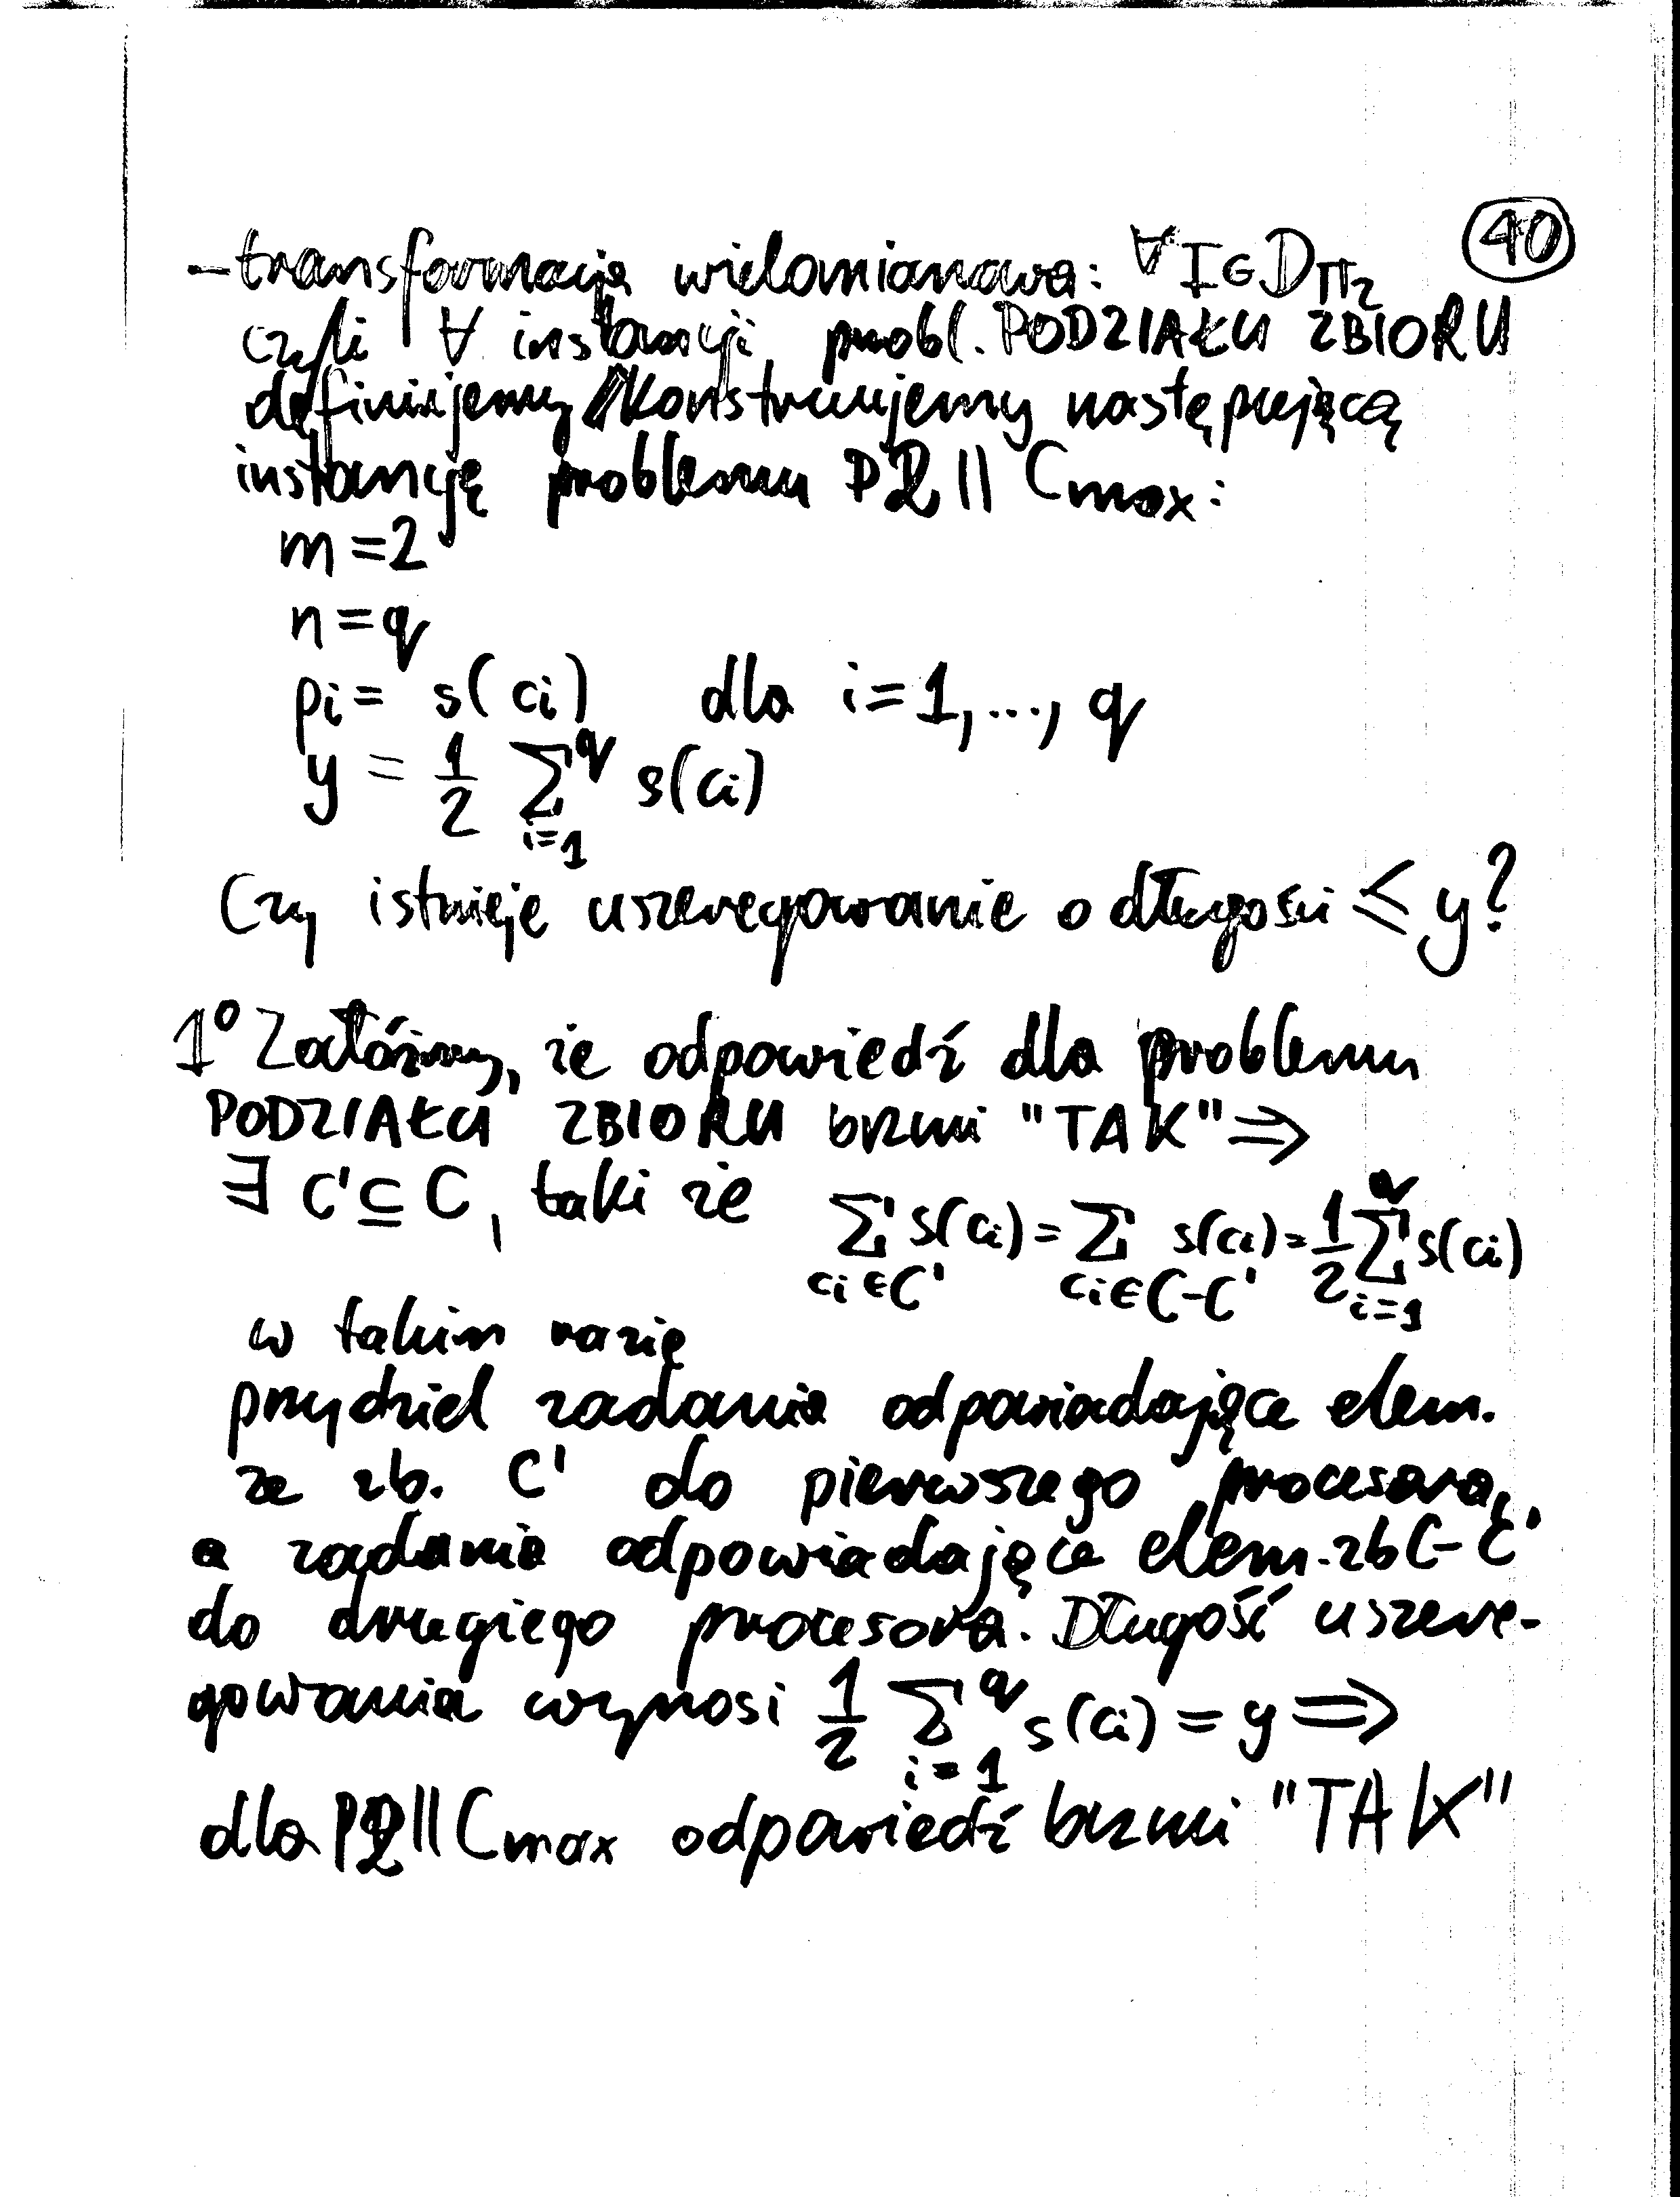 40
– transformacja wielomianowa: ∀ I ∈ D_Π₂
czyli ∀ instancji probl. PODZIAŁU ZBIORU
definiujemy/konstruujemy następującą
instancję problemu P2 || Cmax:
m = 2
n = q
pi = s(ci) dla i = 1, ..., q
y = 1/2 ∑_{i=1}^{q} s(ci)
Czy istnieje uszeregowanie o długości ≤ y?
1° Załóżmy, że odpowiedź dla problemu
PODZIAŁU ZBIORU brzmi "TAK" ⇒
∃ C' ⊆ C, taki że ∑_{ci∈C'} s(ci) = ∑_{ci∈C-C'} s(ci) = 1/2 ∑_{i=1}^{q} s(ci)
w takim razie
przydziel zadania odpowiadające elem.
ze zb. C' do pierwszego procesora,
a zadania odpowiadające elem. zb C-C'
do drugiego procesora. Długość uszere-
gowania wynosi 1/2 ∑_{i=1}^{q} s(ci) = y ⇒
dla P2 || Cmax odpowiedź brzmi "TAK"